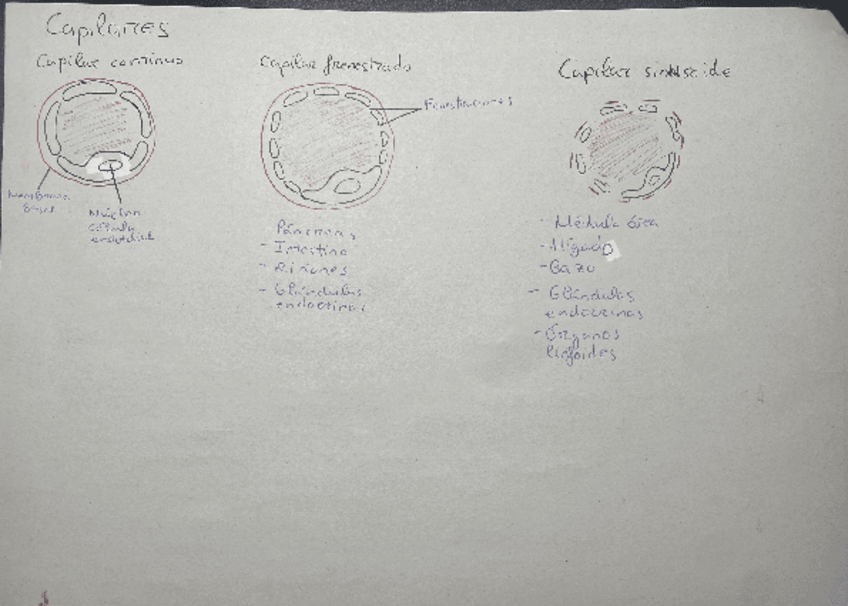 Capilares
Capilar continuo
Capilar fenestrado
Capilar sinusoide
Fenestraciones
Membrana
basal
Núcleo
célula
endotelial
Páncreas
- Intestino
- Riñones
- Glándulas
endocrinas
- Médula ósea
- Hígado
- Bazo
- Glándulas
endocrinas
- Órganos
linfoides